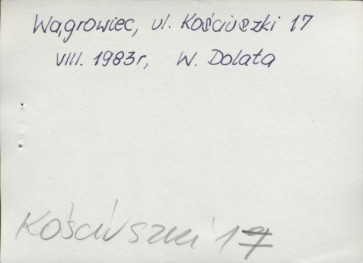 Wągrowiec, ul. Kościuszki 17
VIII. 1983r, W. Dolata
Kościuszki 17